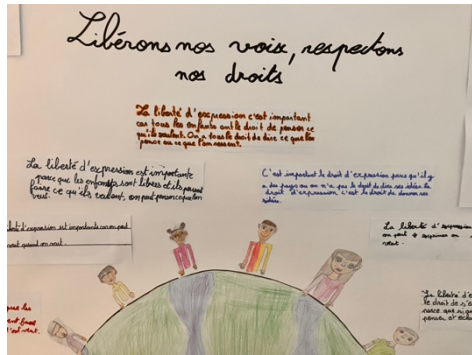 Libérons nos voix, respectons
nos droits
La liberté d'expression c'est important
car tous les enfants ont le droit de penser ce
qu'ils veulent. On a tous le droit de dire ce que l'on
pense ou ce que l'on ressent.
La liberté d'expression est importante
parce que les enfants sont libres et ils peuvent
faire ce qu'ils veulent, on peut penser ce que l'on
veut.
C'est important le droit d'expression parce qu'il y
a des pays où on n'a pas le droit de dire ses idées. Le
droit d'expression, c'est le droit de donner ses
idées.
liberté d'expression est importante car on peut
quand on veut.
La liberté d'expression
on peut s'exprimer
veut.
que les
La liberté d'e
le droit de s'e
parce que si
penser et